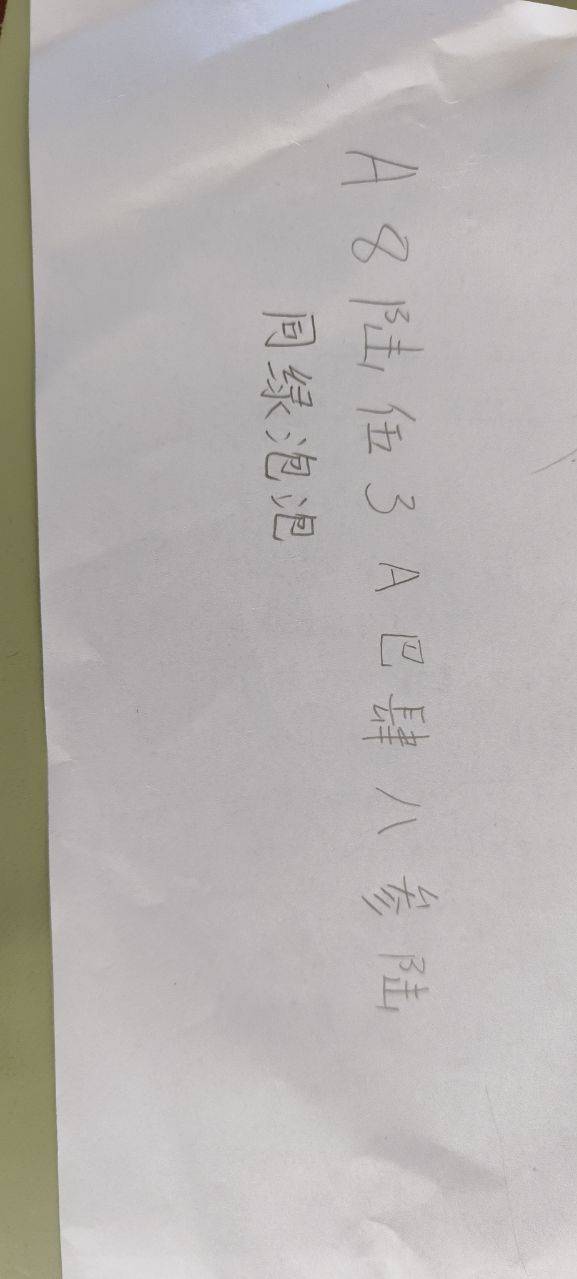 A8陆伍3A巴肆八参陆
同绿泡泡